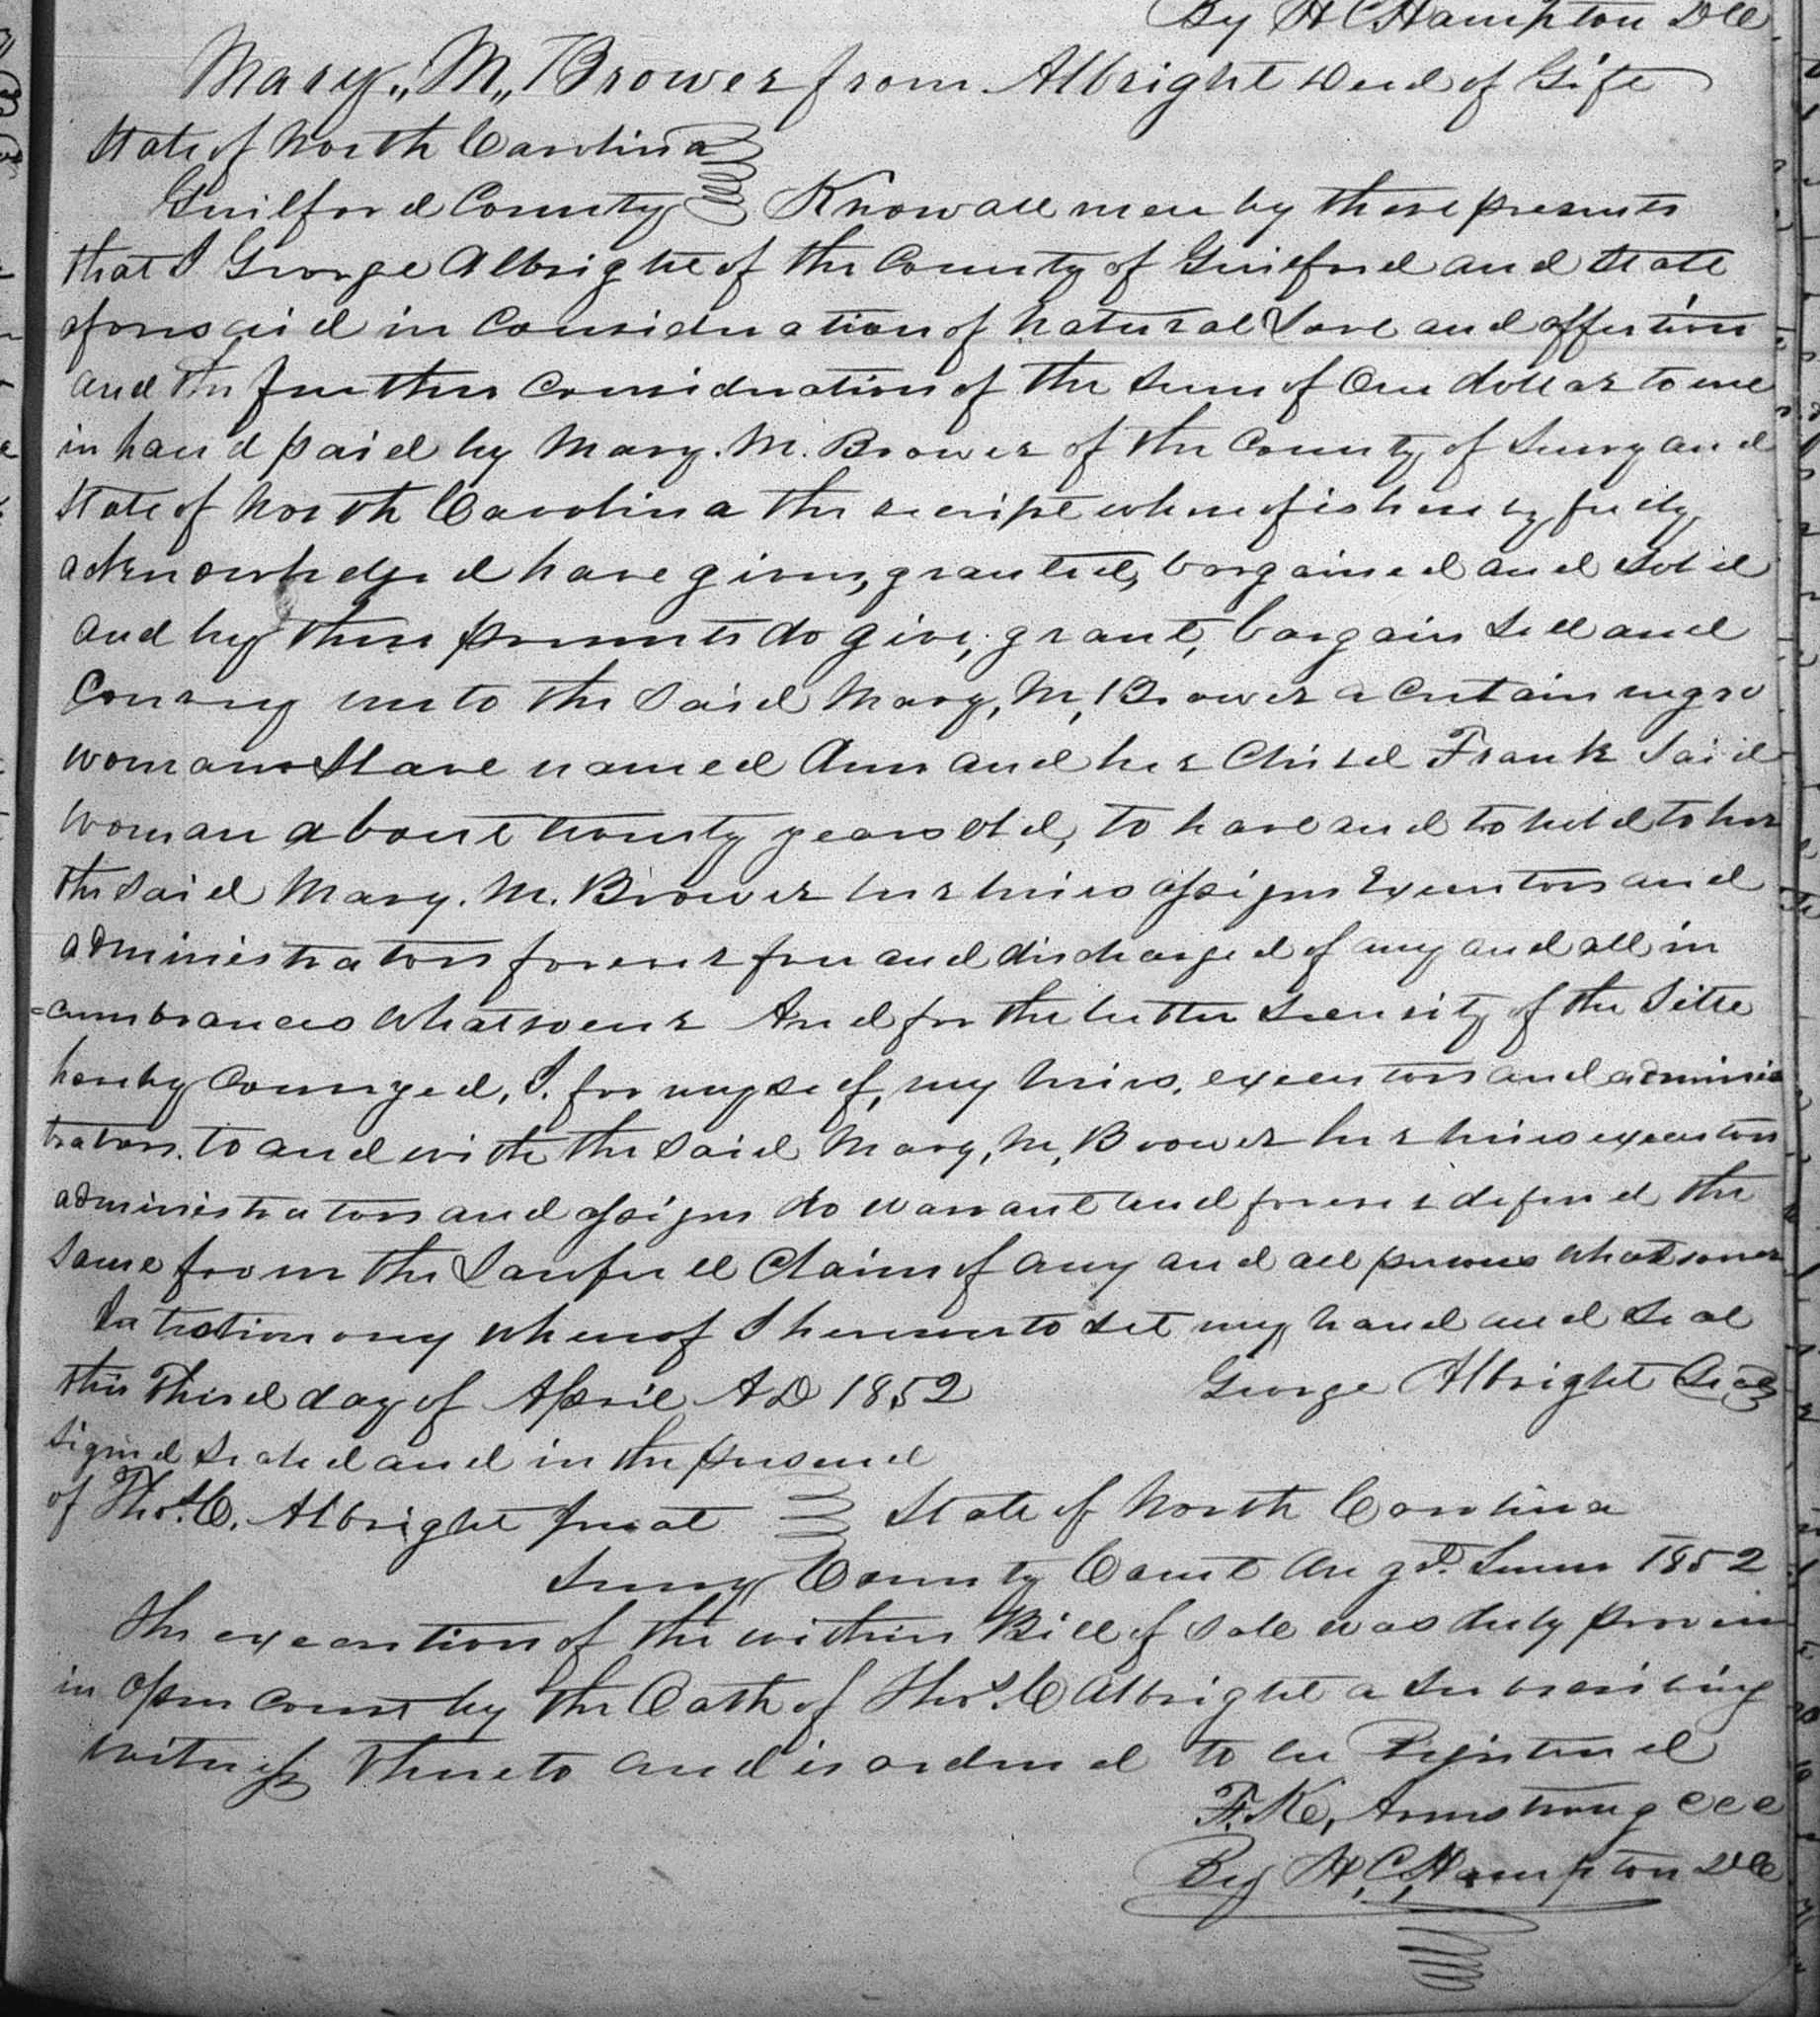 By H C Hampton D C
Mary,, M,, Brower from Albright Deed of Gift
State of North Carolina
Guilford County Know all men by these presents
that I George Albright of the County of Guilford and State
aforesaid in Consideration of natural Love and affection
and the further Consideration of the Sum of One dollar to me
in hand paid by Mary. M. Brower of the County of Surry and
State of North Carolina the receipt whereof is hereby fully
acknowledged have given, granted, bargained and Sold
and by these presents do give, grant, bargain Sell and
Convey unto the Said Mary, M, Brower a Certain negro
woman Slave named Ann and her Child Frank Said
woman about twenty years old, to have and to hold to her
the Said Mary. M. Brower her heirs assigns Executors and
administrators forever free and discharged of any and all in
=cumbrances whatsoever And for the better Security of the Title
hereby Conveyed, I. for myself, my heirs, executors and adminis
trators. to and with the Said Mary, M, Brower her heirs executors
administrators and assigns do warrant and forever defend the
Same from the Lawfull Claim of any and all persons whatsoever
In testimony whereof I hereunto Set my hand and Seal
this Third day of April A D 1852 George Albright Seal
Signed Sealed and in the presence
of Thos. C. Albright Jurat State of North Carolina
Surry County Court Augst. Term 1852
The execution of the within Bill of Sale was duly proven
in open Court by the Oath of Thos. C Albright a Subscribing
witness thereto and is ordered to be Registered
F. K, Armstrong C C C
By H, C, Hampton D C